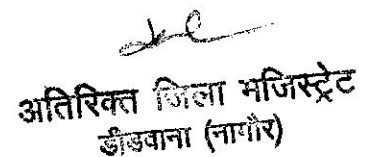 अतिरिक्त जिला मजिस्ट्रेट
डीडवाना (नागौर)